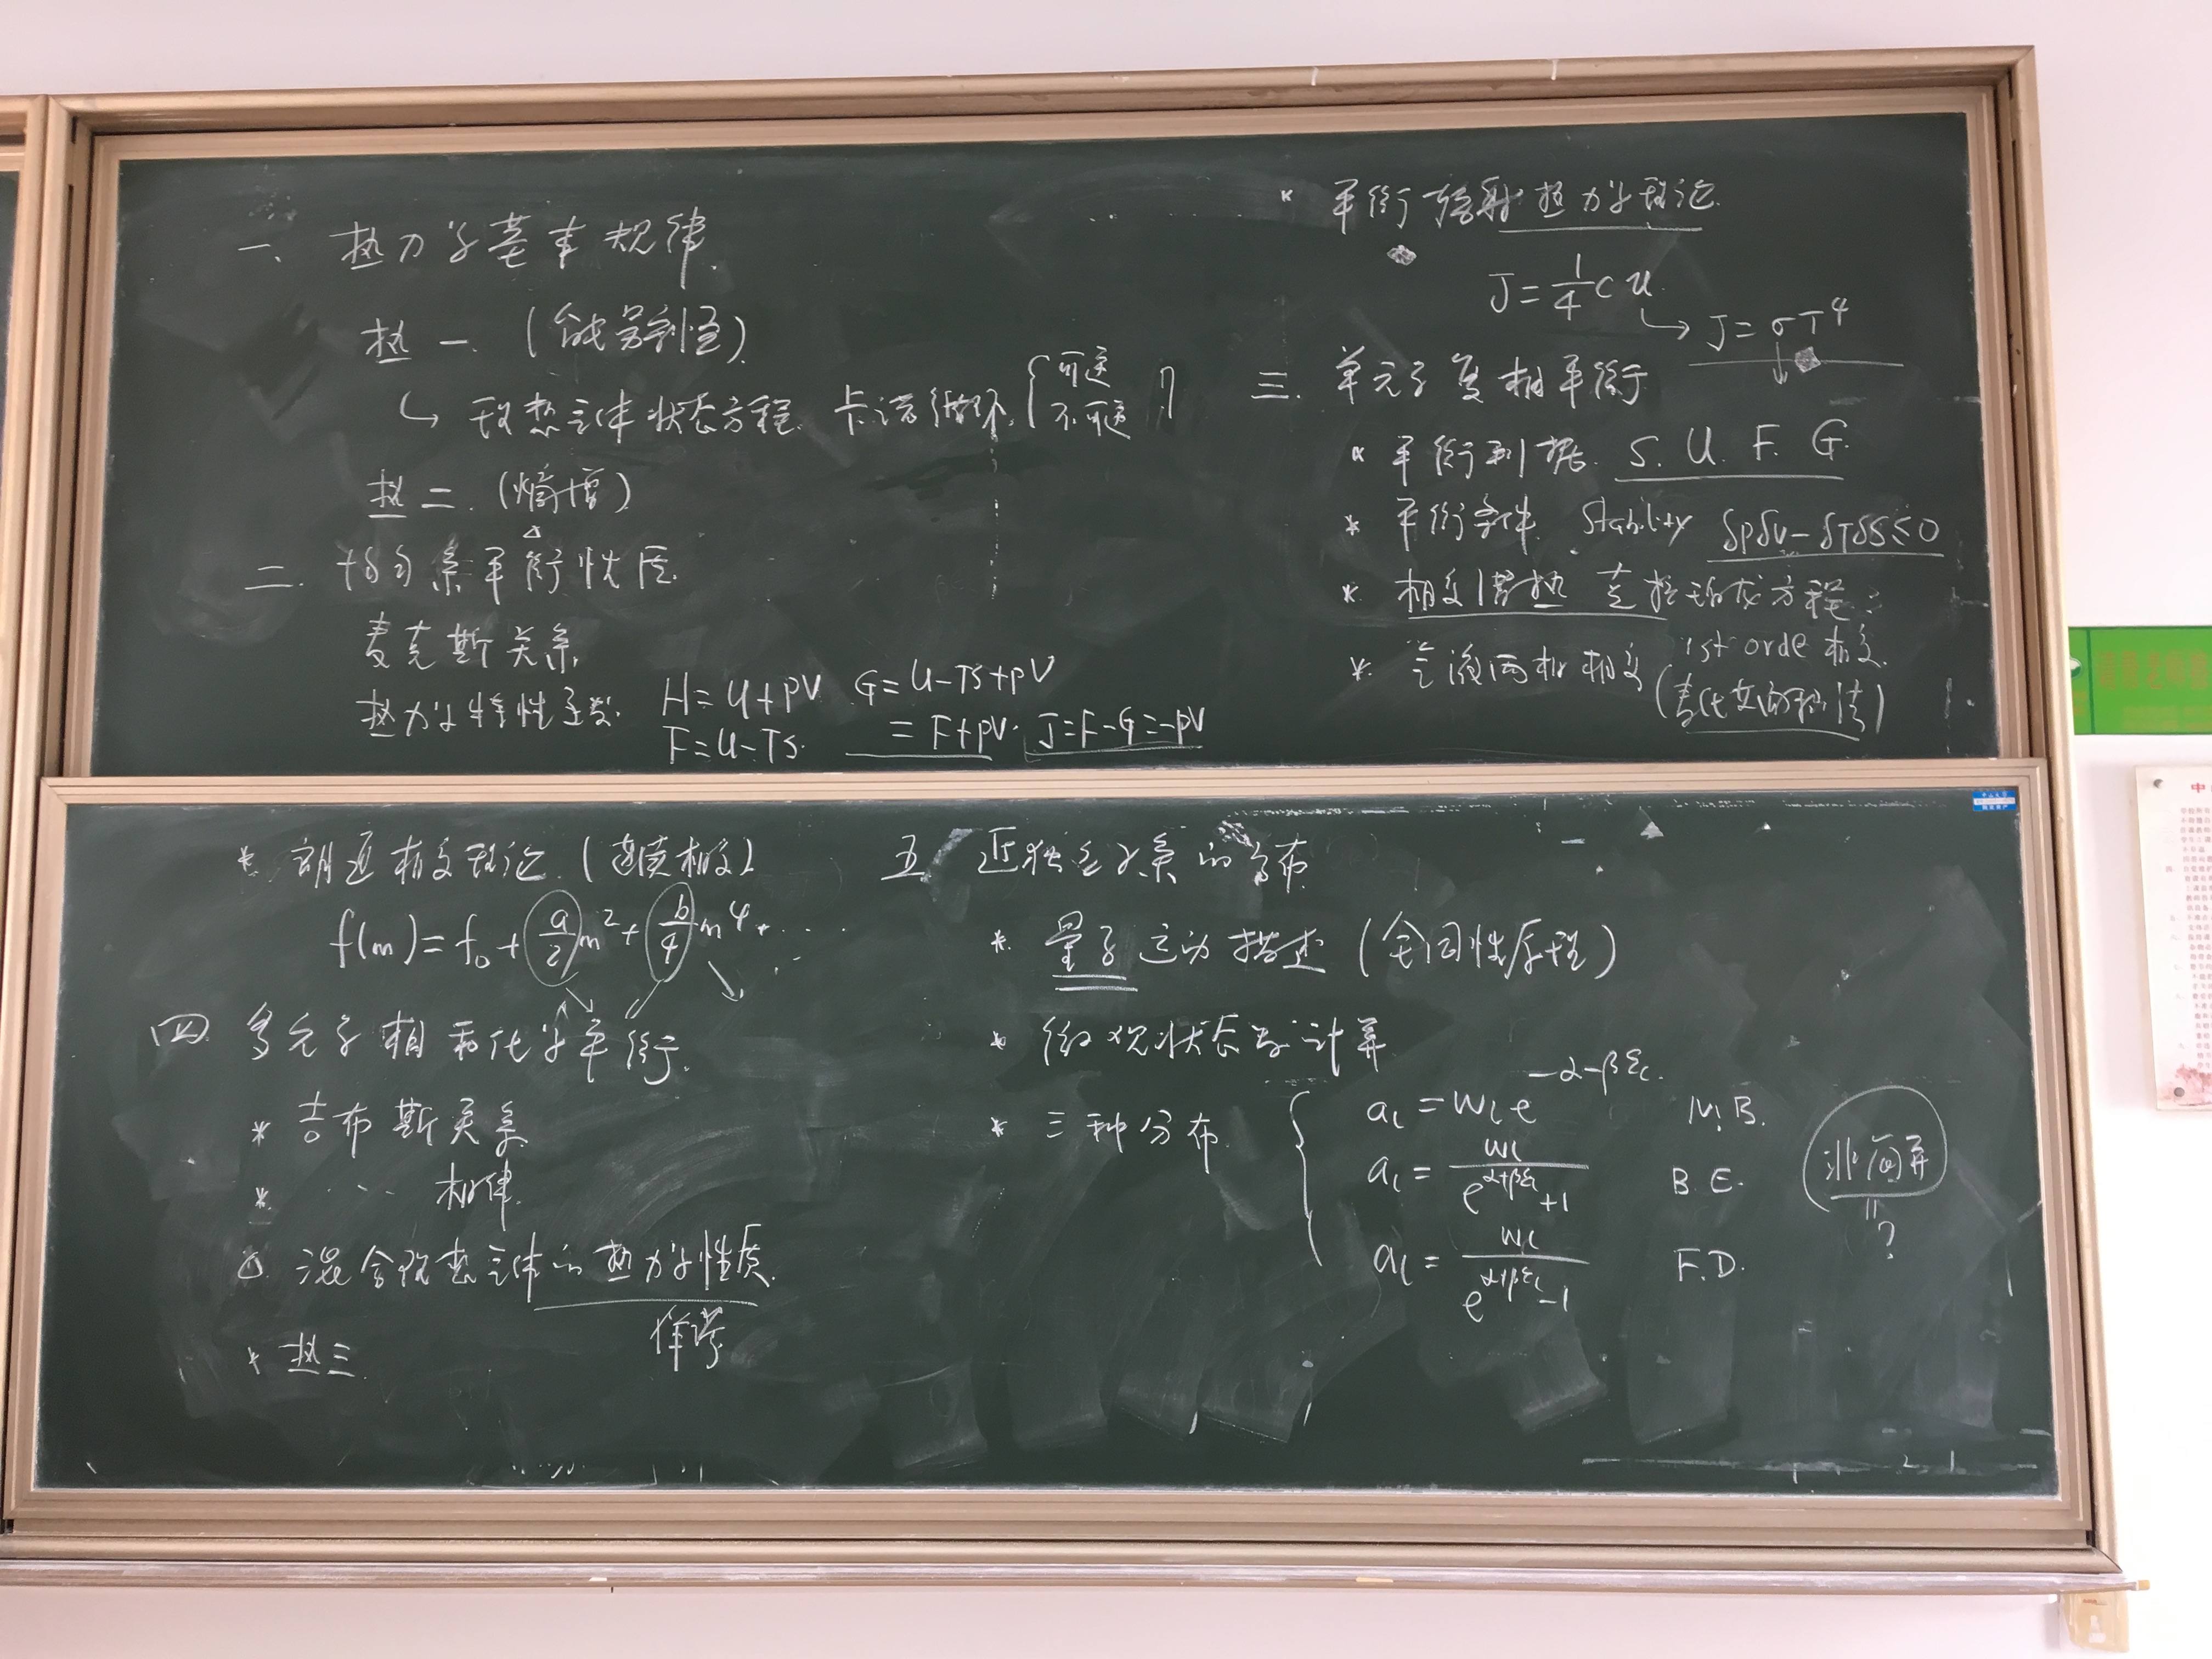 一、热力学基本规律.
热一.(能量守恒).
↳ 理想气体状态方程. 卡诺循环. { 可逆 不可逆 } η
热二.(熵增)
二.均匀系平衡性质.
麦克斯关系.
热力学特性函数. H=U+pV. G=U-TS+pV
F=U-TS. =F+pV. J=F-G=-pV
* 平衡辐射热力学理论.
J=1/4 c u.
↳ J=σT⁴
三.单元系复相平衡
* 平衡判据. S. U. F. G.
* 平衡条件. Stability δpδv-δTδs≤0
* 相变潜热 克拉珀龙方程.
* 气液两相相变 1st orde 相变.
(麦氏等面积法)
* 朗道相变理论.(连续相变)
f(m)=f₀+a/2 m²+b/4 m⁴+....
四 多元系相和化学平衡.
* 吉布斯关系
* .... 相律.
△. 混合理想气体的热力学性质.
佯谬
* 热三
五 近独立子系的分布
*. 量子运动描述(全同性原理)
* 微观状态数计算
* 三种分布. {
a_l=w_l e^{-α-βε_l}. M.B.
a_l=w_l/(e^{α+βε_l}+1) B.E.
a_l=w_l/(e^{α+βε_l}-1) F.D.
非简并
=
?